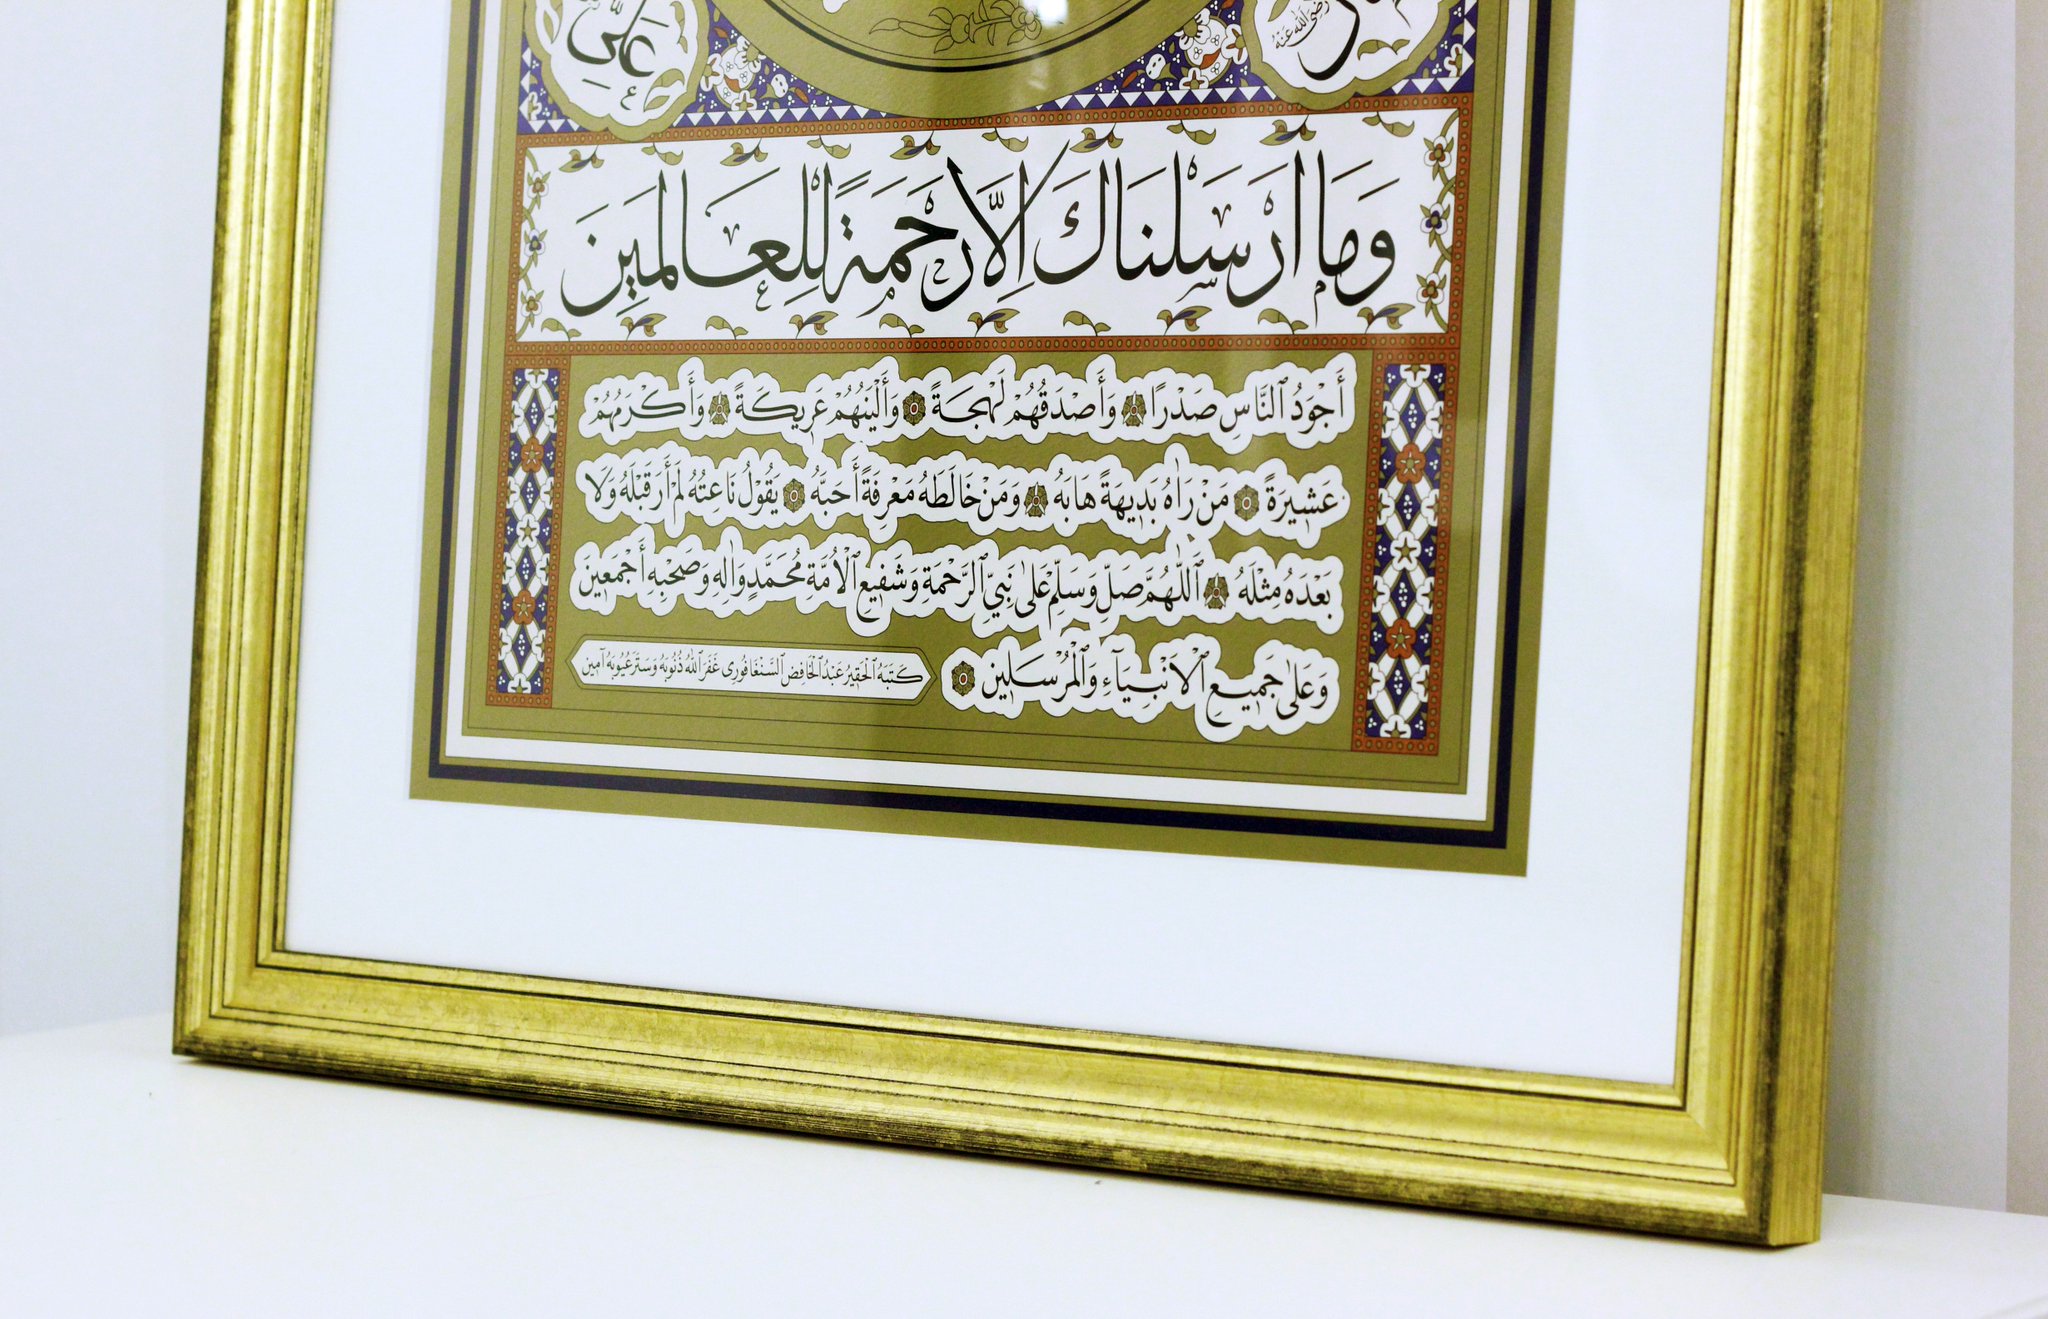 رضي الله عنه
علي
وَمَا أَرْسَلْنَاكَ إِلَّا رَحْمَةً لِلْعَالَمِينَ
أَجْوَدُ ٱلنَّاسِ صَدْرًا ۞ وَأَصْدَقُهُمْ لَهْجَةً ۞ وَأَلْيَنُهُمْ عَرِيكَةً ۞ وَأَكْرَمُهُمْ
عَشِيرَةً ۞ مَنْ رَاٰهُ بَدِيهَةً هَابَهُ ۞ وَمَنْ خَالَطَهُ مَعْرِفَةً أَحَبَّهُ ۞ يَقُوْلُ نَاعِتُهُ لَمْ أَرَ قَبْلَهُ وَلَا
بَعْدَهُ مِثْلَهُ ۞ ٱللّٰهُمَّ صَلِّ وَسَلِّمْ عَلٰى نَبِيِّ ٱلرَّحْمَةِ وَشَفِيعِ ٱلْاُمَّةِ مُحَمَّدٍ وَاٰلِهِ وَصَحْبِهِ أَجْمَعِينَ
وَعَلٰى جَمِيعِ ٱلْاَنْبِيَآءِ وَٱلْمُرْسَلِين ۞
كَتَبَهُ ٱلْحَقِيرُ عَبْدُ ٱلْخَافِض ٱلسَّنْغَافُورِى غَفَرَ ٱللّٰهُ ذُنُوبَهُ وَسَتَرَ عُيُوبَهُ آمِين